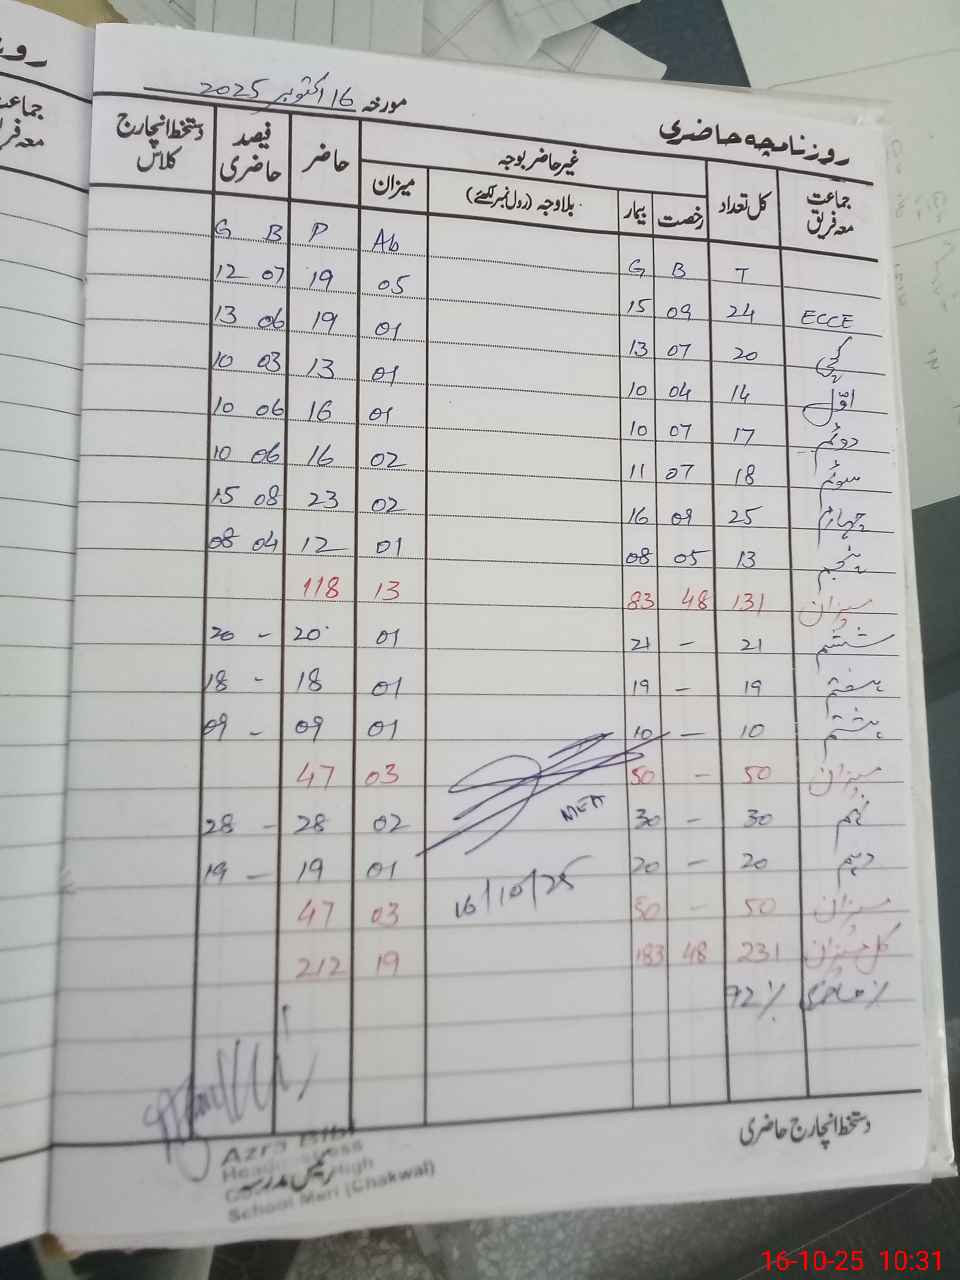 روزنامچہ حاضری مورخہ 16 اکتوبر 2025
جماعت معہ فریق کل تعداد غیر حاضر بوجہ حاضر فیصد حاضری دستخط انچارج کلاس
رخصت بیمار بلاوجہ (رول نمبر لکھئے) میزان
T B G Ab P B G
ECCE 24 09 15 05 19 07 12
کچی 20 07 13 01 19 06 13
اوّل 14 04 10 01 13 03 10
دوئم 17 07 10 01 16 06 10
سوئم 18 07 11 02 16 06 10
چہارم 25 09 16 02 23 08 15
پنجم 13 05 08 01 12 04 08
میزان 131 48 83 13 118
ششم 21 - 21 01 20 - 20
ہفتم 19 - 19 01 18 - 18
ہشتم 10 - 10 01 09 - 09
میزان 50 - 50 03 47
MEA
نہم 30 - 30 02 28 - 28
دہم 20 - 20 01 19 - 19
16/10/25
میزان 50 - 50 03 47
کل میزان 231 48 183 19 212
% حاضری 92%
دستخط انچارج حاضری
رئیس مدرسہ
Azra Bibi
Headmistress
High
School Mari (Chakwal)
جماعت
معہ فریق
16-10-25 10:31